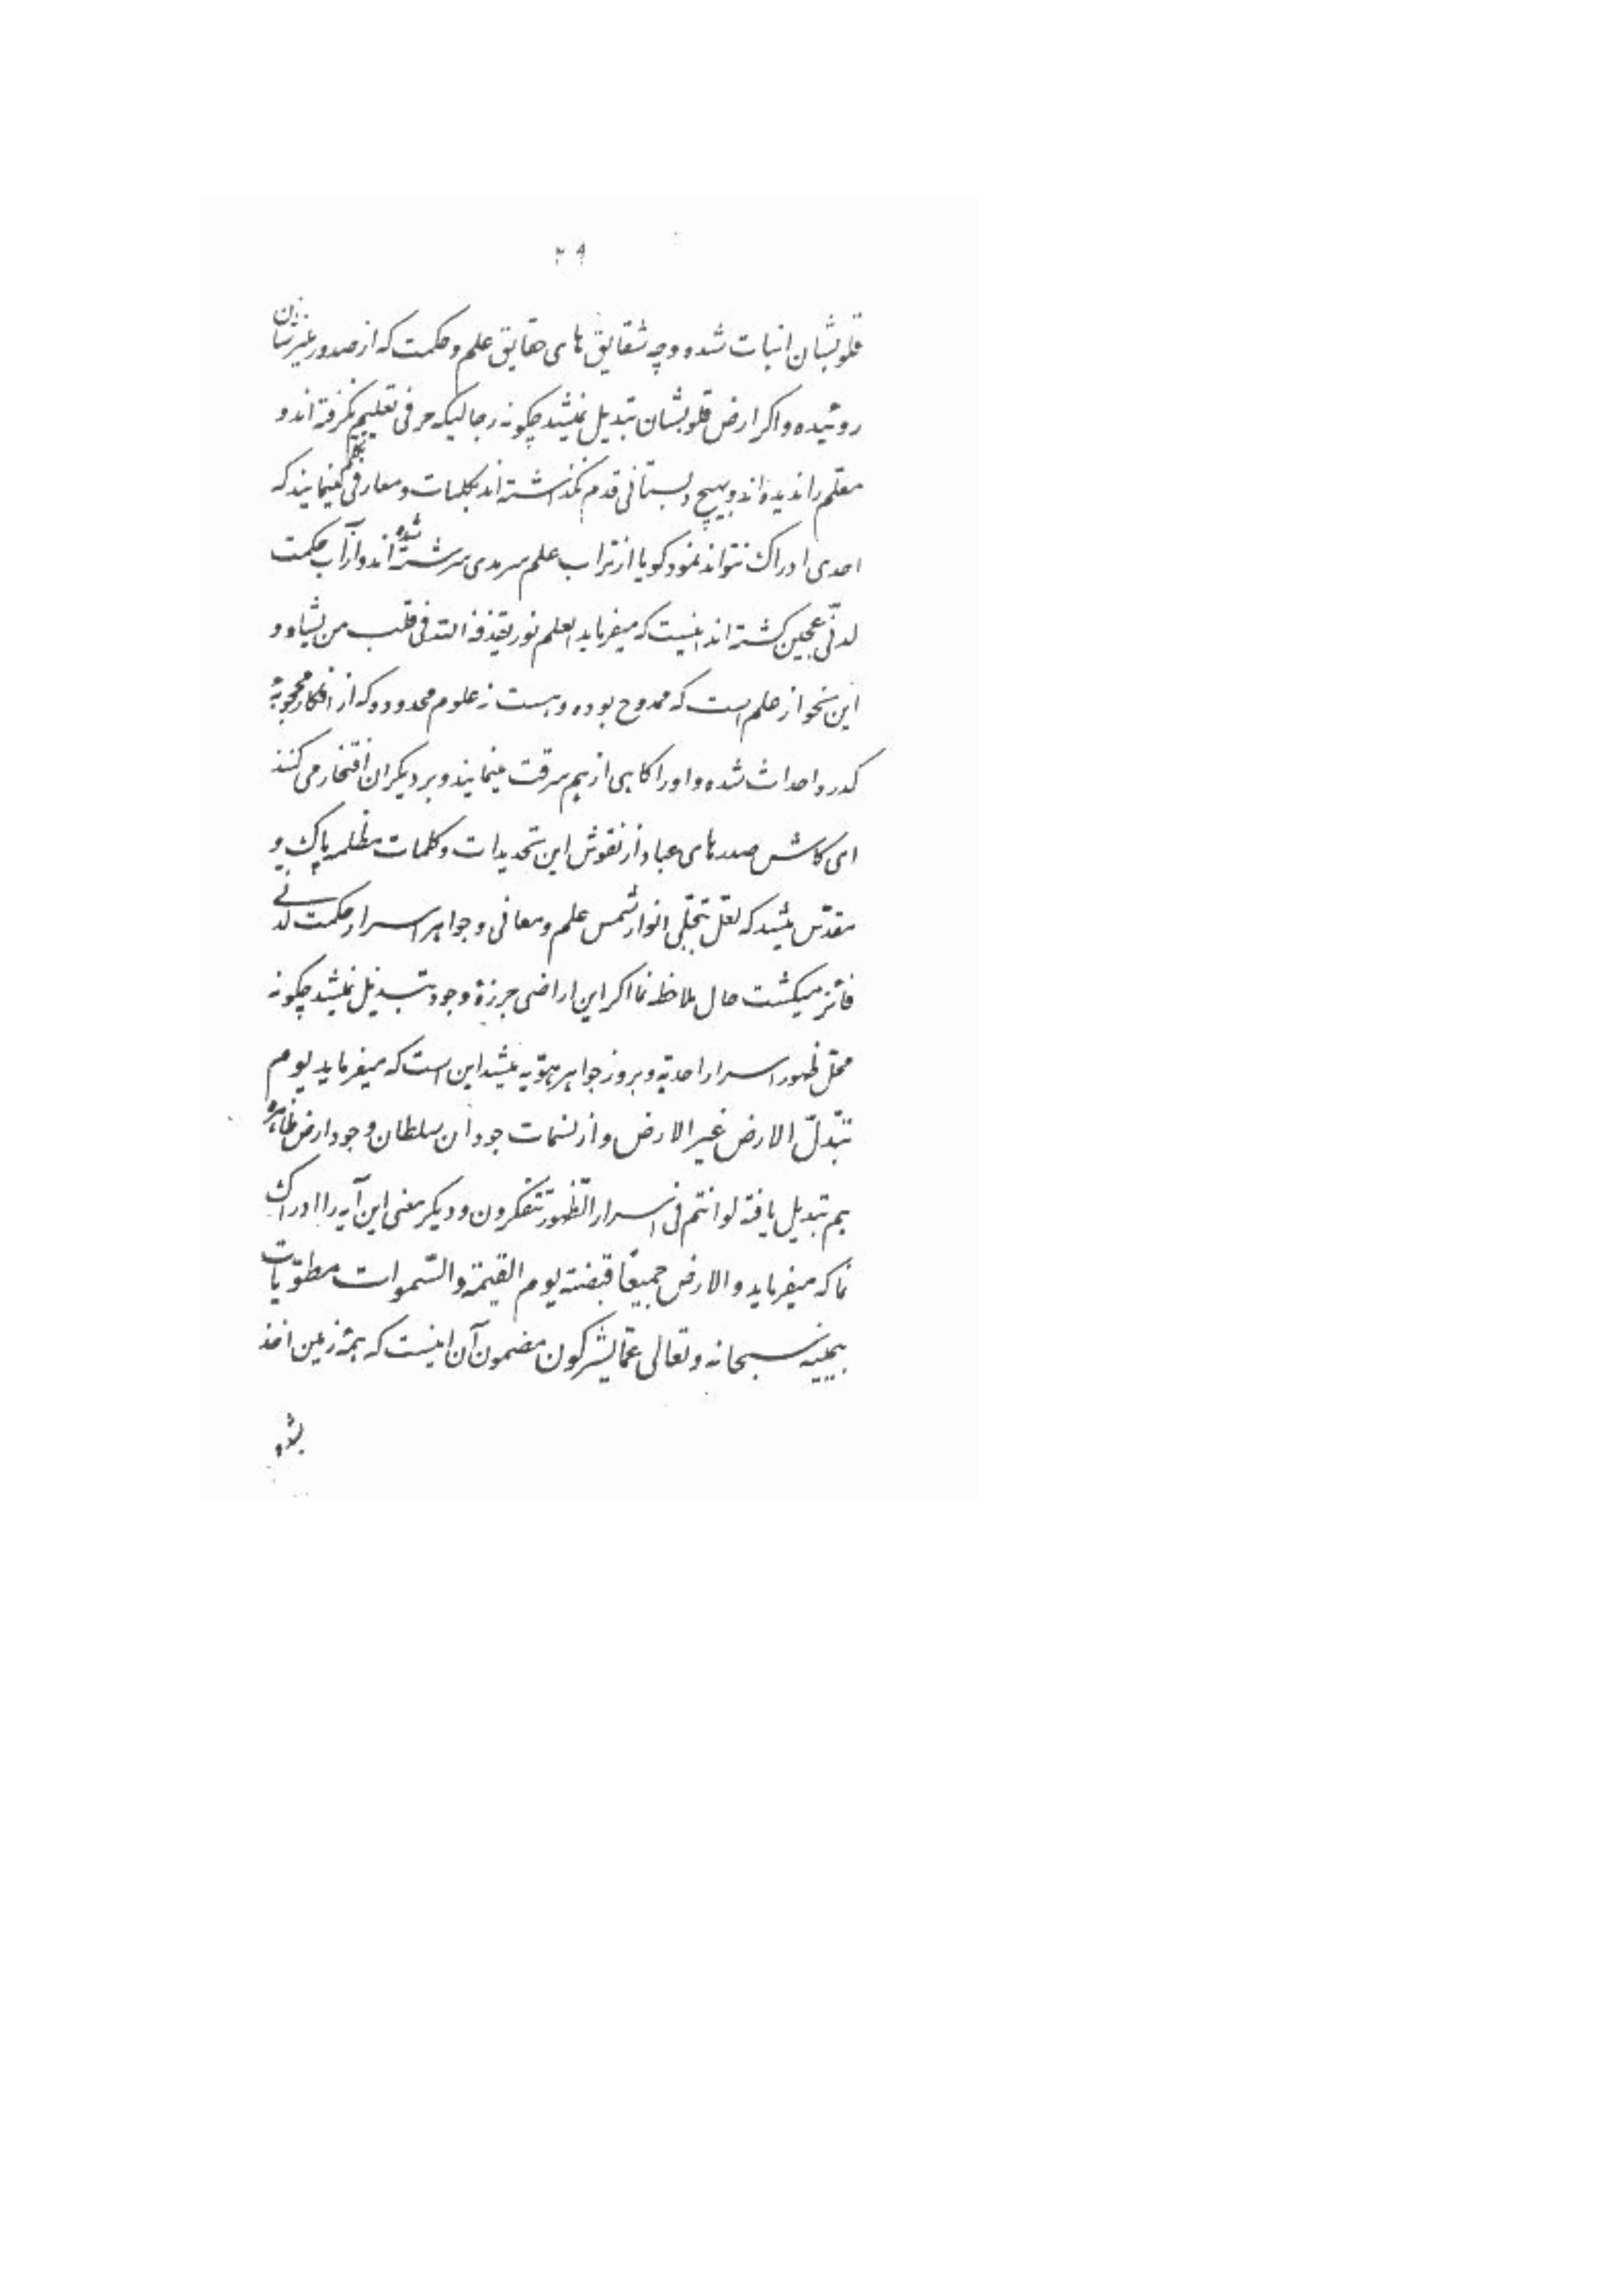 ۳۹
قلوبشان انبات شده و چه شقایق های حقایق علم و حکمت که از صدور منیرشان
روئیده و اگر ارض قلوبشان تبدیل نمیشد چگونه رجالیکه حرفی تعلیم نگرفته اند و
معلم را ندیده اند و بهیچ دبستانی قدم نگذاشته اند بکلمات و معارفی تکلم مینمایند که
احدی ادراک نتواند نمود گویا از تراب علم سرمدی سرشته شده اند و از آب حکمت
لدنّی عجین گشته اند اینست که میفرماید العلم نور یقذفه الله فی قلب من یشاء و
این نحو از علم است که ممدوح بوده و هست نه علوم محدوده که از افکار محجوبهٔ
کدره احداث شده و او را گاهی از هم سرقت مینمایند و بر دیگران افتخار می کنند
ای کاش صدرهای عباد از نقوش این تحدیدات و کلمات مظلمه پاک و
مقدّس میشد که لعلّ بتجلّی انوار شمس علم و معانی و جواهر اسرار حکمت لدنی
فائز میگشت حال ملاحظه نما اگر این اراضی جرزهٔ وجود تبدیل نمیشد چگونه
محلّ ظهور اسرار احدیّه و بروز جواهر هویّه میشد این است که میفرماید یوم
تبدّل الارض غیر الارض و از نسمات جود ان سلطان وجود ارض ظاهره
هم تبدیل یافته لو انتم فی اسرار الظّهور تتفکرون و دیگر معنی این آیه را ادراک
نما که میفرماید و الارض جمیعًا قبضته یوم القیمة و السّموات مطویّات
بیمینه سبحانه و تعالی عمّا یشرکون مضمون آن اینست که همهٔ زمین اخذ
شده